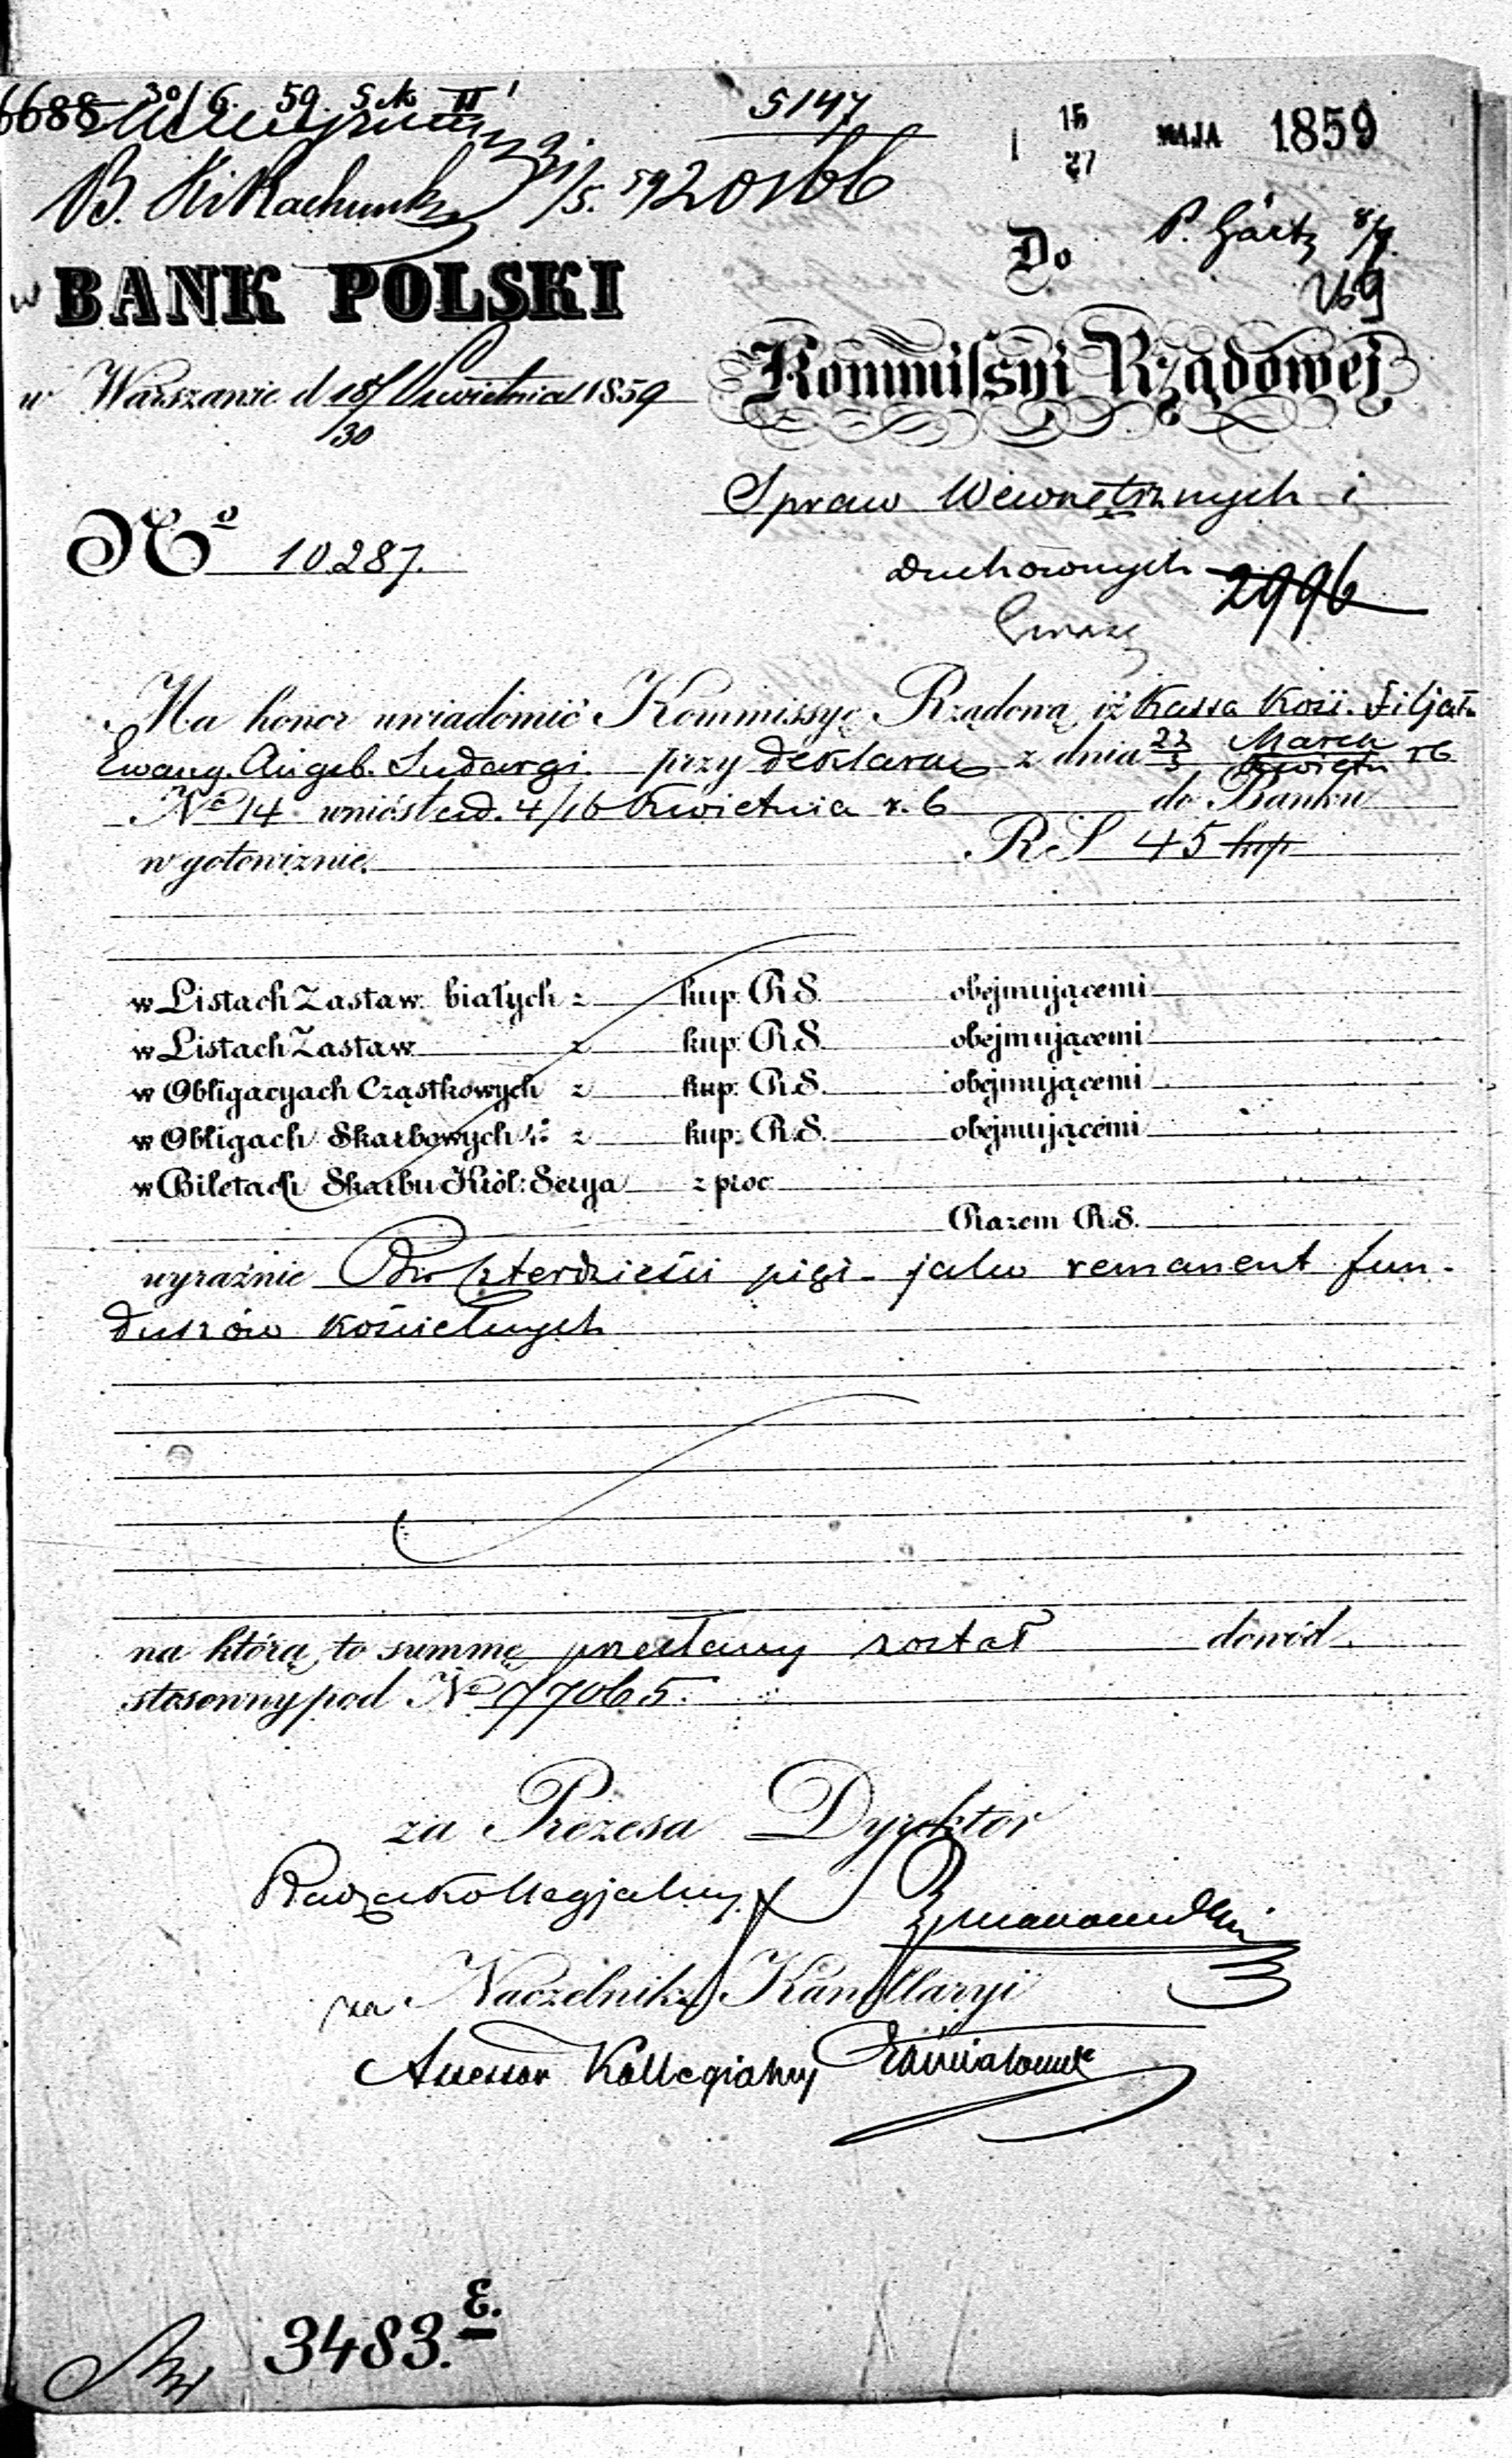 6688 30/6. 59. Sek II
5147
15
27 MAJA 1859
B.
/5. 59 20166
Do P. Gärtz
BANK POLSKI
w Warszawie d 18/30 Kwietnia 1859
Kommissyi Rządowej
Spraw Wewnętrznych i
Duchownych 2996
№ 10287.
Ma honor uwiadomić Kommissyę Rządową, iż Kassa Kość. Filjał.
Ewang. Augsb. Sudargi. przy deklaracyi z dnia 22 Marca r b
№ 14 wniósł d. 4/16 Kwietnia r. b do Banku
w gotowiznie. RS 45 kop
w Listach Zastaw: białych z kup: R.S. obejmującemi
w Listach Zastaw z kup: R.S. obejmującemi
w Obligacyach Cząstkowych z kup: R.S. obejmującemi
w Obligach Skarbowych z kup: R.S. obejmującemi
w Biletach Skarbu Król: Serya z proc
Razem R.S.
wyraźnie Rs Czterdzieści pięć - jako remanent fun-
duszów kościelnych
na którą to summę przesłany został dowód
stosowny pod № 77065.
za Prezesa Dyrektor
Radzca Kollegjalny
za Naczelnika Kancellaryi
Assessor Kollegialny
3483. E.